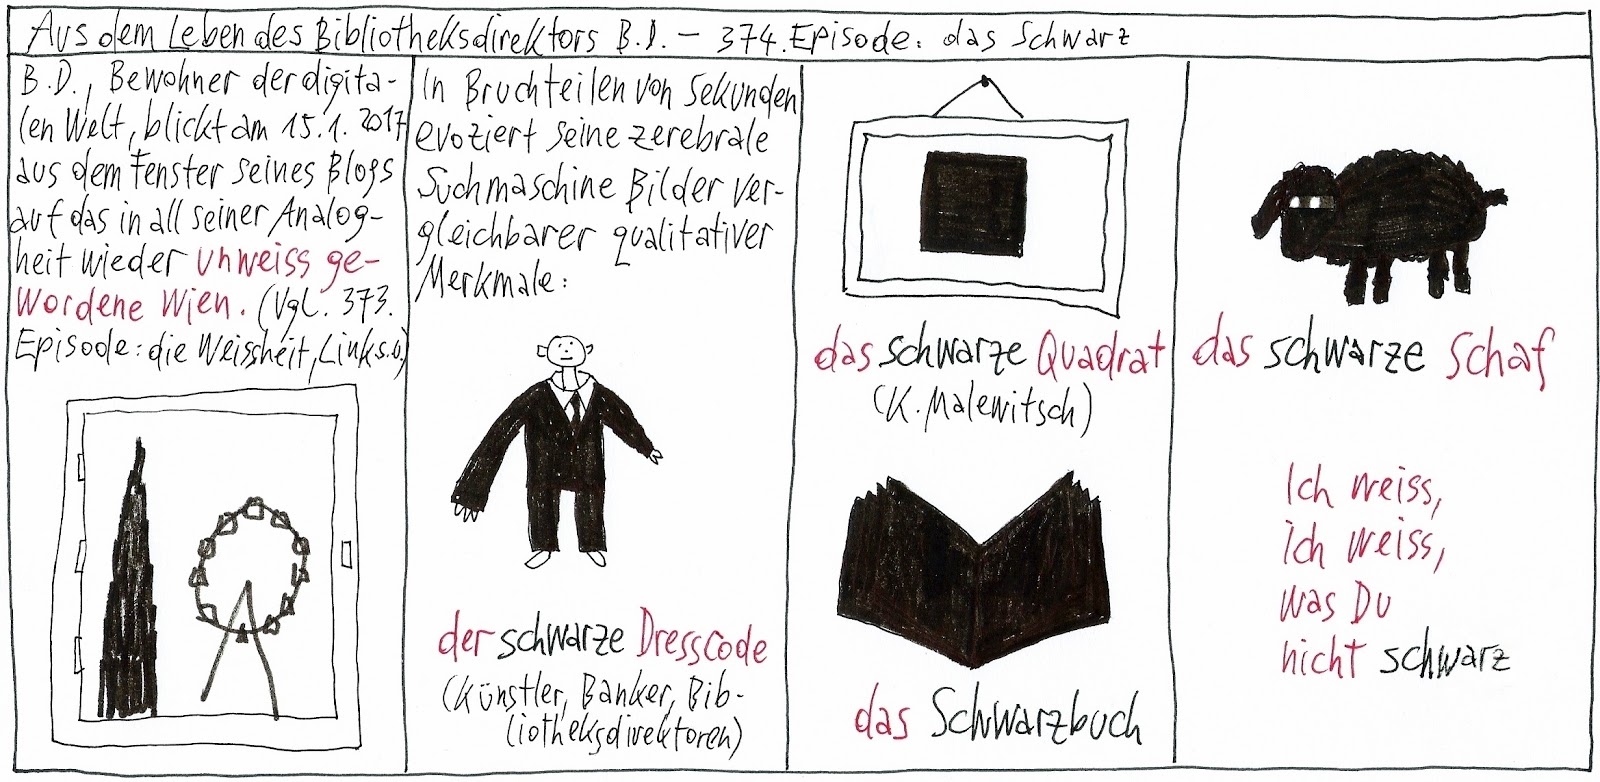 Aus dem Leben des Bibliotheksdirektors B.D. – 374. Episode: das Schwarz
B.D., Bewohner der digita-
len Welt, blickt am 15.1.2017
aus dem Fenster seines Blogs
auf das in all seiner Analog-
heit wieder unweiss ge-
wordene Wien. (Vgl. 373.
Episode: die Weissheit, Link s.o.)
In Bruchteilen von Sekunden
evoziert seine zerebrale
Suchmaschine Bilder ver-
gleichbarer qualitativer
Merkmale:
der schwarze Dresscode
(Künstler, Banker, Bib-
liotheksdirektoren)
das schwarze Quadrat
(K. Malewitsch)
das Schwarzbuch
das schwarze Schaf
Ich weiss,
ich weiss,
was Du
nicht schwarz